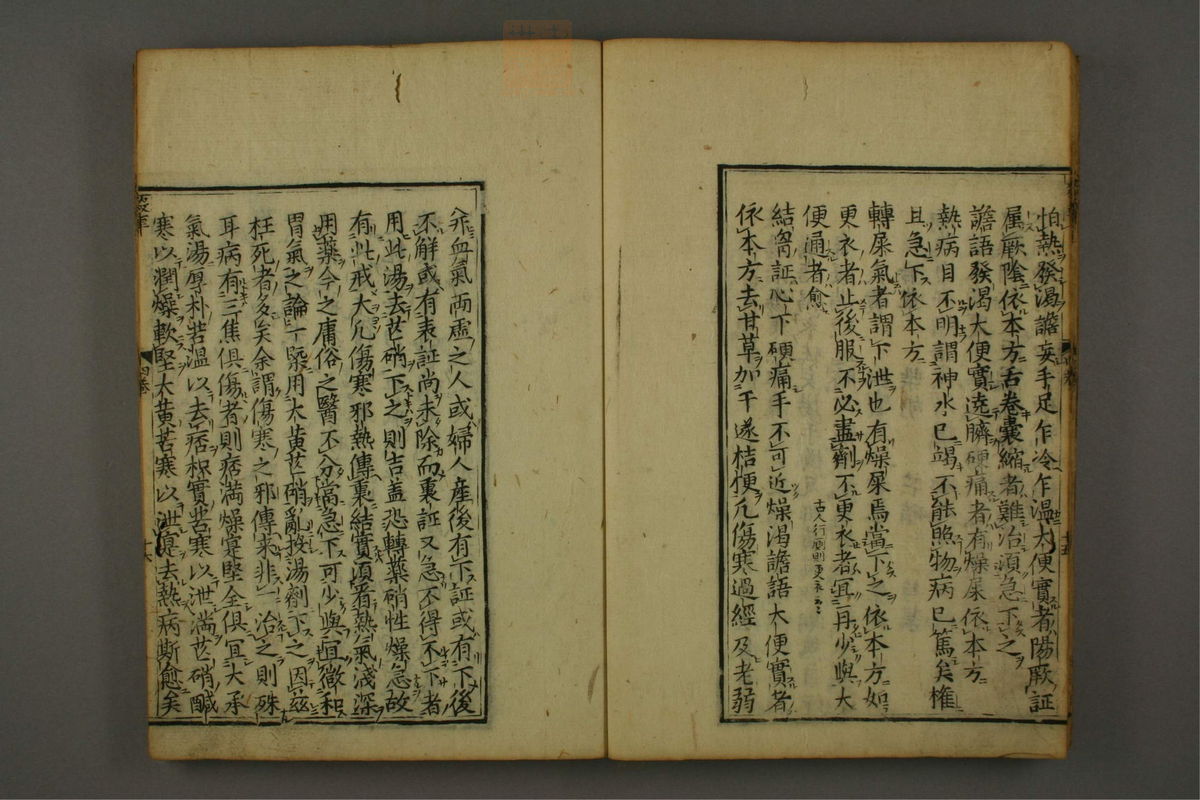 怕熱發渴譫妄手足乍冷乍温大便實者陽厥証
屬厥陰依本方舌卷囊縮者難治須急下之
譫語發渴大便實遶臍硬痛者有燥屎依本方
熱病目不明謂神水已竭不能照物病已篤矣
且急下依本方
轉屎氣者謂下泄也有燥屎焉當下之依本方如
更衣者止後服不必盡劑不更衣者宜再少與大
便通者愈
古人行廁則更衣云云
結胷証心下硬痛手不可近燥渴譫語大便實者
依本方去甘草加干遂桔梗凢傷寒過經及老弱
并血氣兩虛之人或婦人産後有下証或有下後
不解或有表証尚未除而裏証又急不得不下者
用此湯去芒硝下之則吉盖恐轉藥硝性燥急故
有此戒大凢傷寒邪熱傳裏結實須看熱氣淺深
用藥今之庸俗之醫不分當急下可少與宜微和
胃氣之論一槩用大黄芒硝亂投湯劑下之因茲
枉死者多矣余謂傷寒之邪傳来非一治之則殊
耳病有三焦俱傷者則痞満燥寔堅全俱宜大承
氣湯厚朴苦温以去痞枳實苦寒以泄満芒硝鹹
寒以潤燥軟堅大黄苦寒以泄寔去熱病斯愈矣
四卷
十六